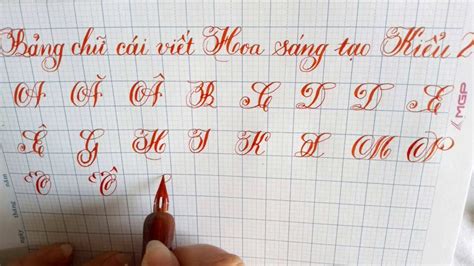 Bảng chữ cái viết Hoa sáng tạo Kiểu 2
A Ă Â B C D Đ E
Ê G H I K L M N
O Ô
MGP